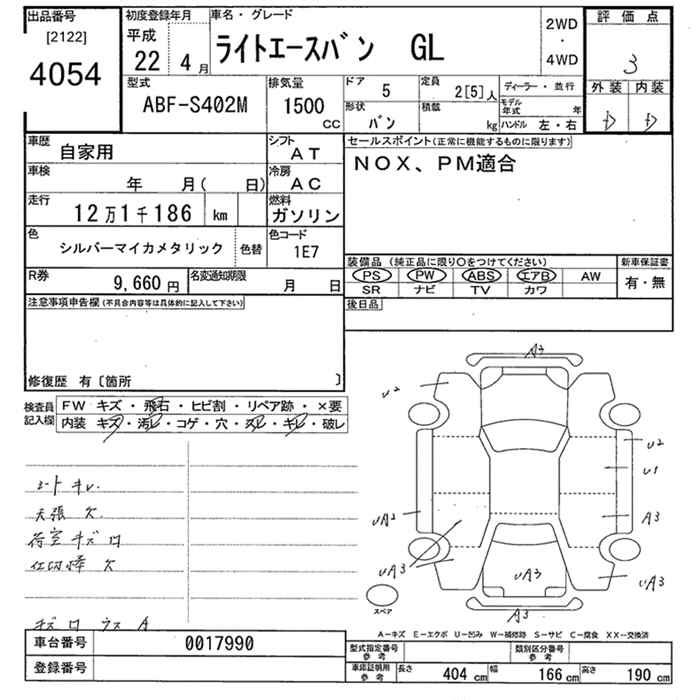 出品番号 初度登録年月 車名・グレード 2WD・4WD 評価点
[2122]
4054
平成 22 4月
ライトエースバン GL
3
外装 内装
D D
型式 排気量 ドア 5 定員 2[5]人 ディーラー・並行
ABF-S402M 1500cc 形状 バン 積載 kg モデル年式 年
ハンドル 左・右
車歴 自家用 シフト AT セールスポイント(正常に機能するものに限ります)
NOX、PM適合
車検 年 月( 日) 冷房 AC
走行 12万1千186 km 燃料 ガソリン
色 シルバーマイカメタリック 色替 色コード 1E7
装備品 (純正品に限り○をつけてください) 新車保証書
PS PW ABS エアB AW 有・無
SR ナビ TV カワ
R券 9,660円 名変通知期限 月 日
後日品
注意事項申告欄(不具合内容等は具体的に記入して下さい)
修復歴 有〔箇所 〕
検査員記入欄
FW キズ・飛石・ヒビ割・リペア跡・×要
内装 キズ・汚レ・コゲ・穴・スレ・キレ・破レ
シートキレ
天張欠
荷室キズ
欠
A3
U2
U2
U1
UA2
A3
UA3
UA3
UA3
A3
スペア
A-キズ E-エクボ U-凹み W-補修跡 S-サビ C-腐食 XX-交換済
車台番号 0017990
登録番号
型式指定番号 参考 類別区分番号 参考
車庫証明用 参考 長さ 404cm 幅 166cm 高さ 190cm